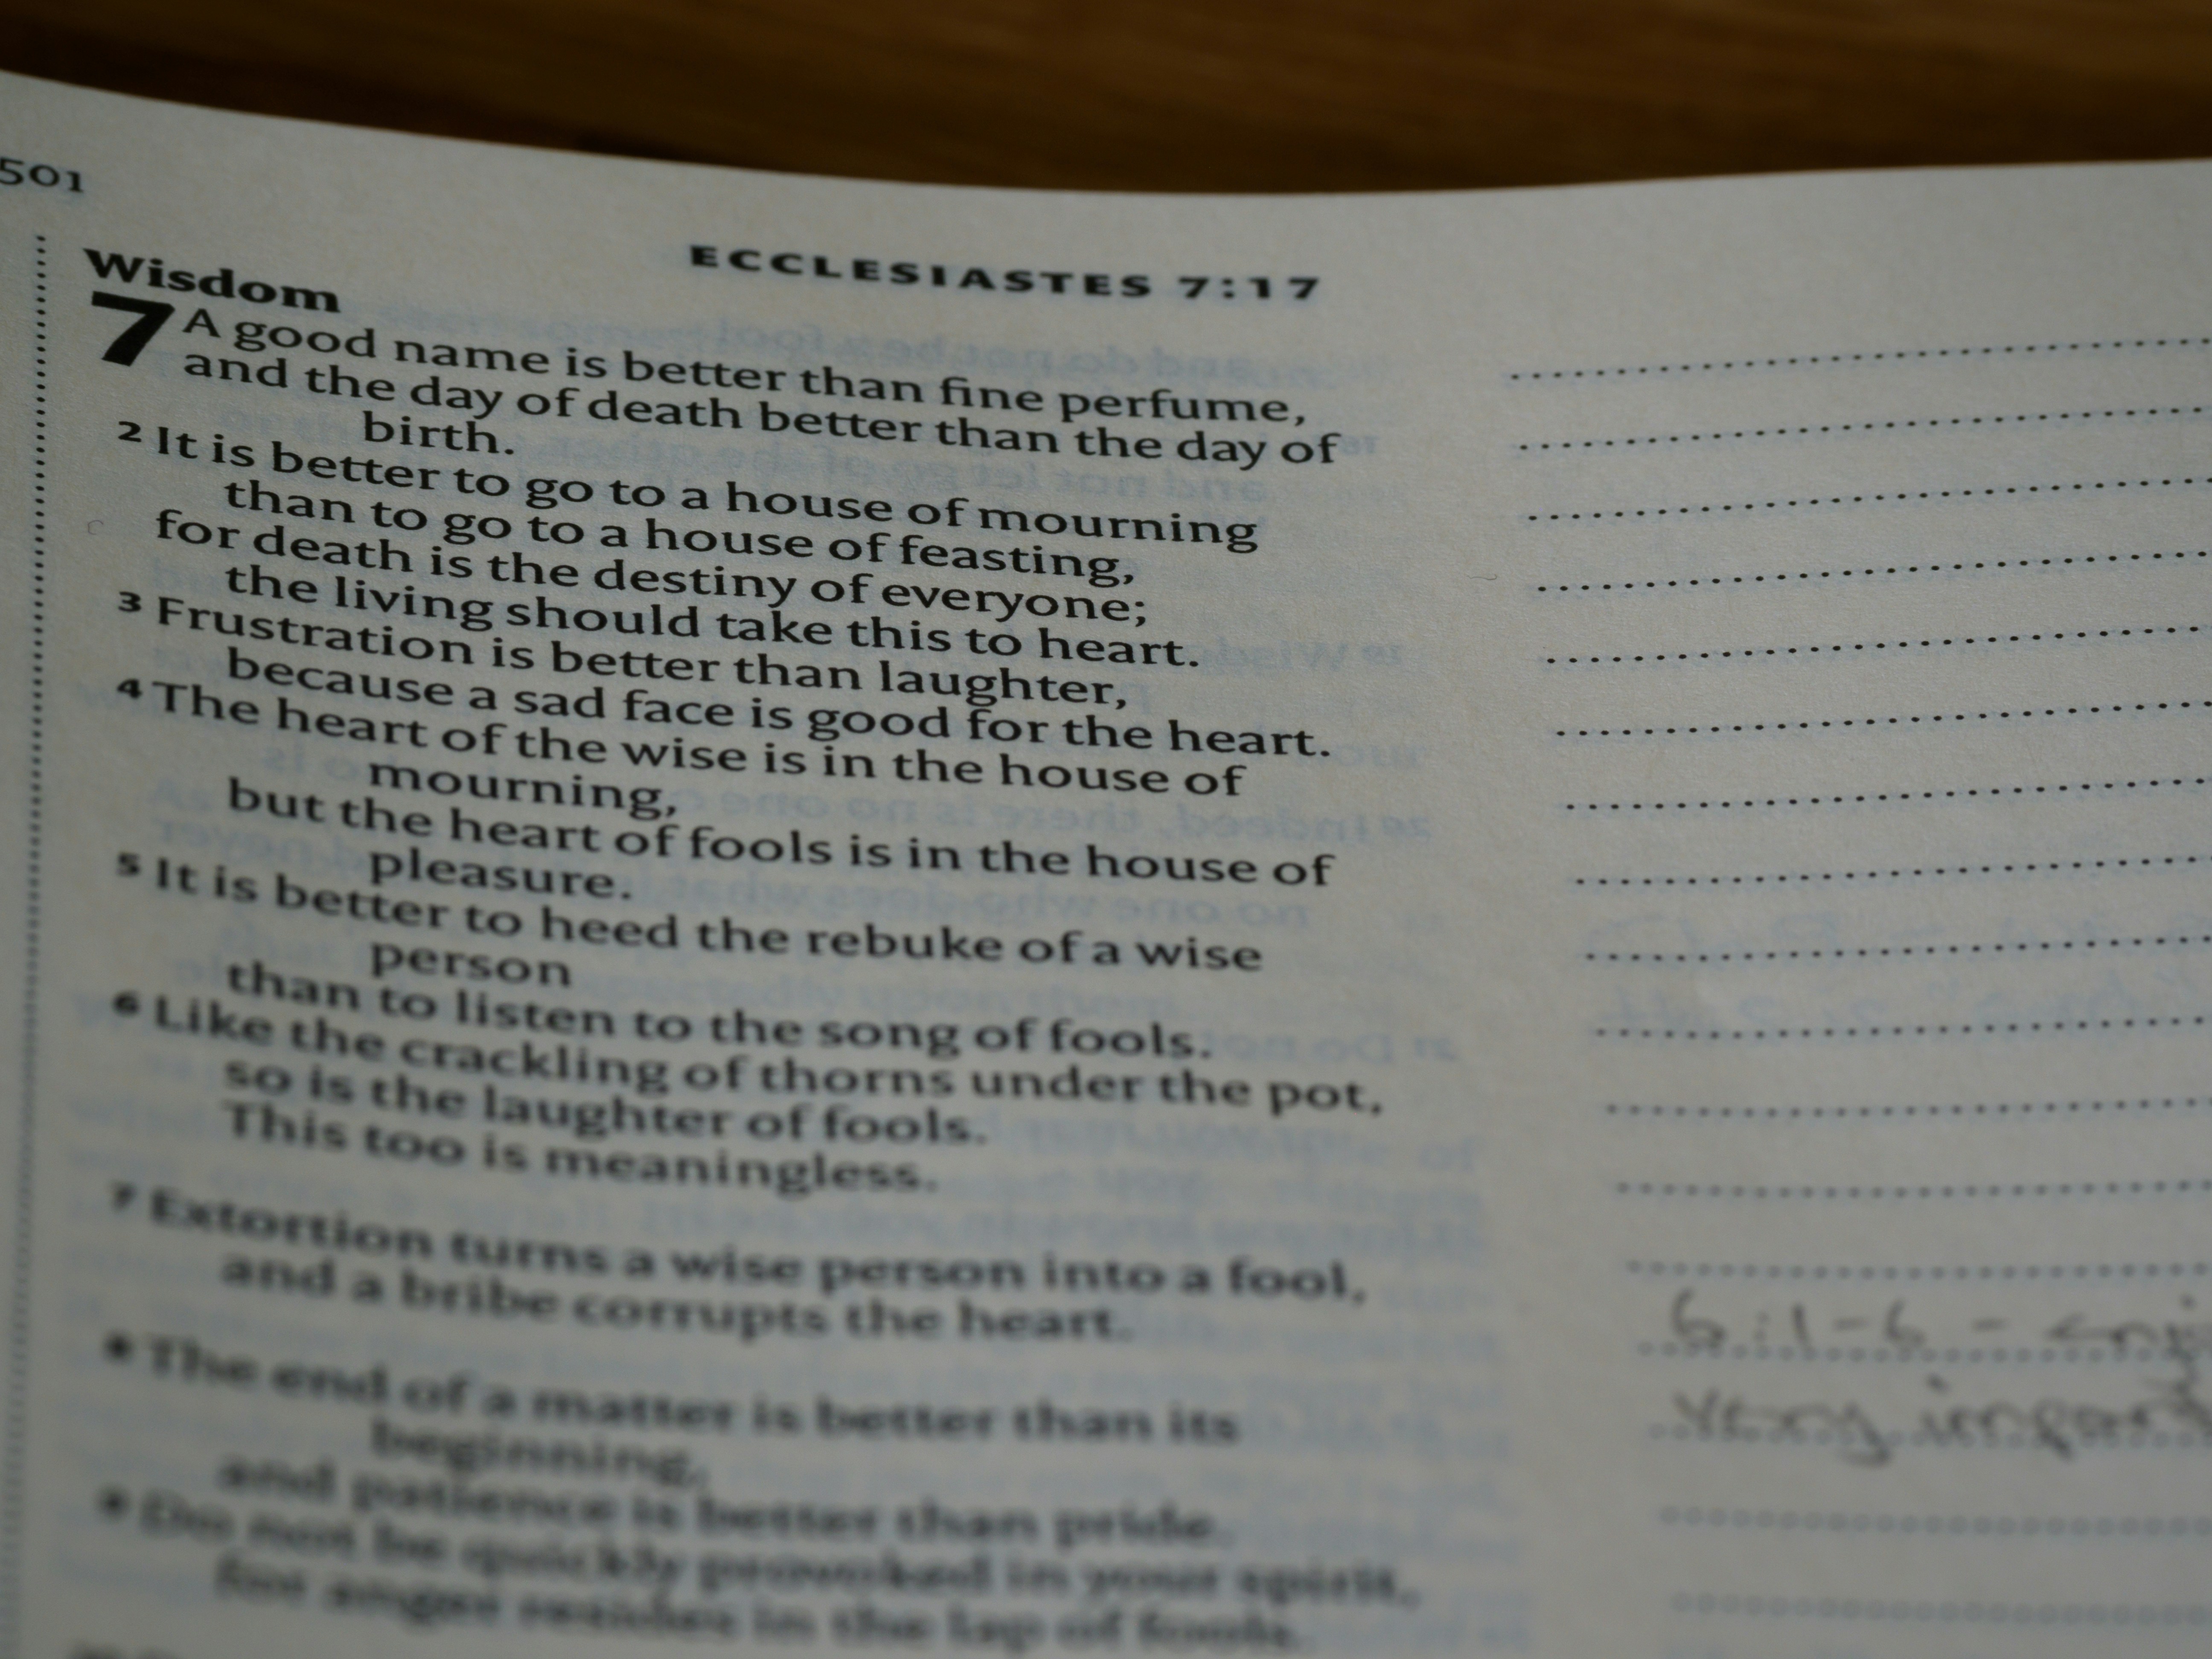 501
ECCLESIASTES 7:17
Wisdom
7 A good name is better than fine perfume,
and the day of death better than the day of
birth.
2 It is better to go to a house of mourning
than to go to a house of feasting,
for death is the destiny of everyone;
the living should take this to heart.
3 Frustration is better than laughter,
because a sad face is good for the heart.
4 The heart of the wise is in the house of
mourning,
but the heart of fools is in the house of
pleasure.
5 It is better to heed the rebuke of a wise
person
than to listen to the song of fools.
6 Like the crackling of thorns under the pot,
so is the laughter of fools.
This too is meaningless.
7 Extortion turns a wise person into a fool,
and a bribe corrupts the heart.
8 The end of a matter is better than its
beginning,
and patience is better than pride.
9 Do not be quickly provoked in your spirit,
for anger resides in the lap of fools.
6:1-6 - enj
very import